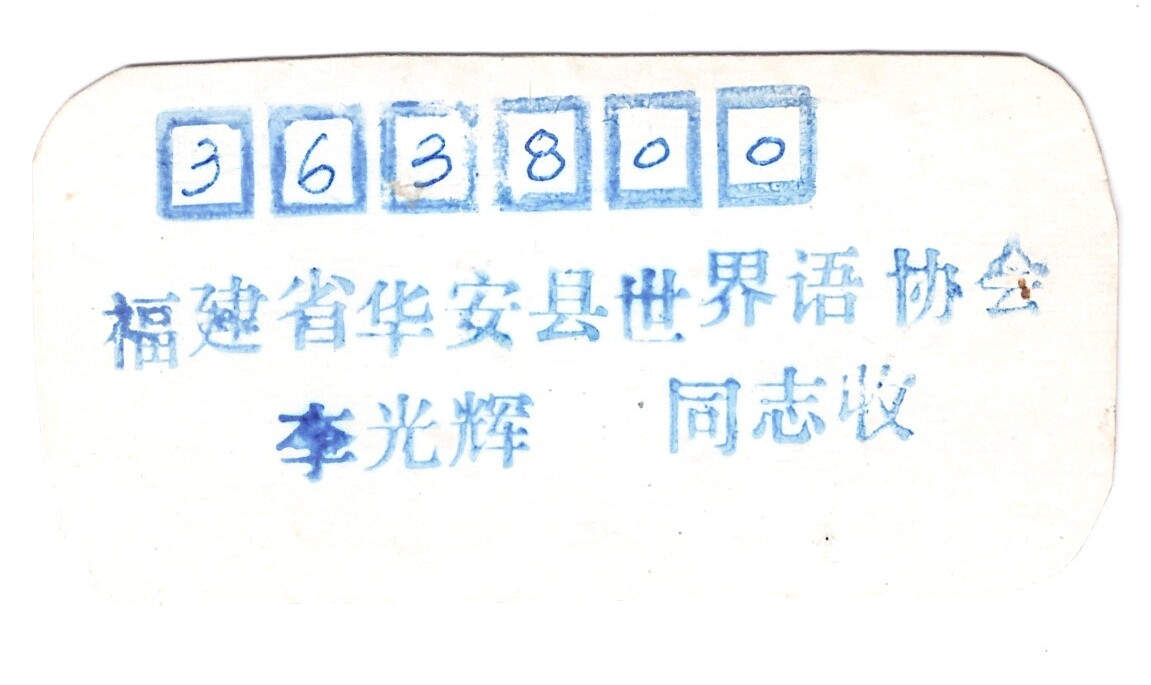 363800
福建省华安县世界语协会
李光辉 同志收